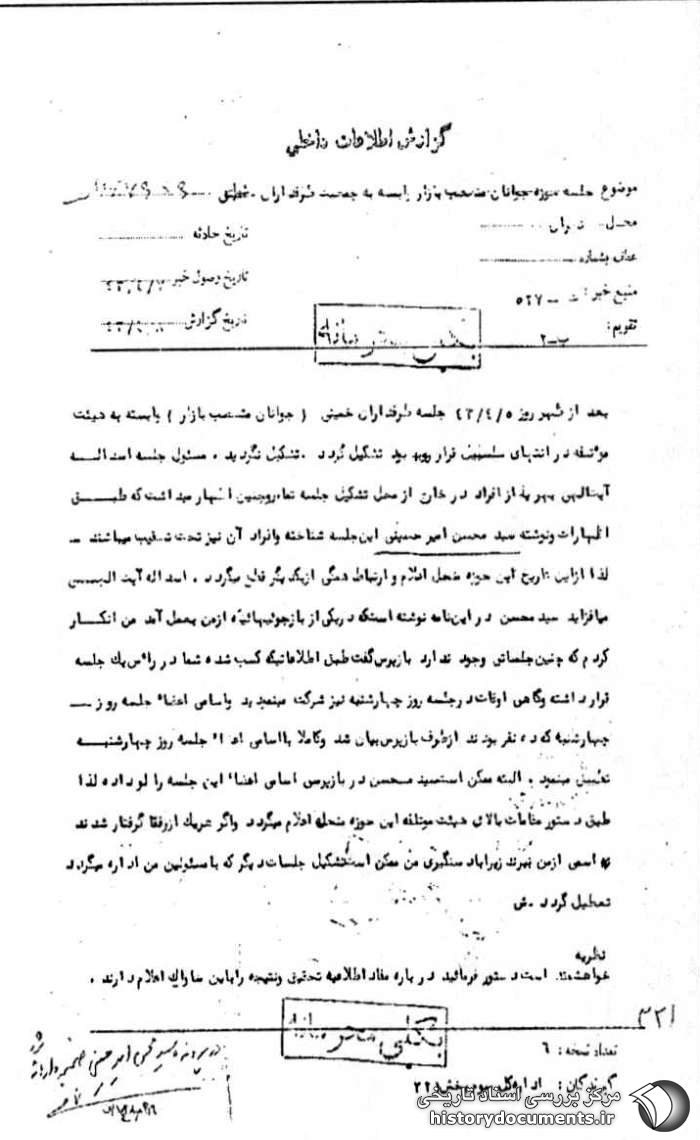 گزارش اطلاعات داخلی
موضوع جلسه حوزه جوانان متعصب بازار وابسته به جمعیت طرفداران خمینی
محل تهران
تاریخ حادثه
عطف بشماره
تاریخ وصول خبر ۴۳/۴/۷
منبع خبر: ۵۲۷
تاریخ گزارش
تقویم: ب-۲
بعد از ظهر روز ۴۳/۴/۵ جلسه طرفداران خمینی (جوانان متعصب بازار) وابسته به هیئت
موتلفه در انتهای سلسبیل قرار بود تشکیل گردد. تشکیل نگردید. مسئول جلسه اسداله
آیتالهی بهر یک از افراد در خارج از محل تشکیل جلسه اظهار میداشت که طبق
اظهارات ونوشته سید محسن امیر حسینی این جلسه شناخته وافراد آن نیز تحت تعقیب میباشند -
لذا ازاین تاریخ این حوزه منحل اعلام و ارتباط همگی از یکدیگر قطع میگردد. اسداله آیت الهی
میافزاید سید محسن در این نامه نوشته استکه در یکی از بازجوئیهائیکه ازمن بعمل آمد من انکار
کردم که چنین جلساتی وجود ندارد بازپرس گفت طبق اطلاعاتیکه کسب شده شما در رأس یك جلسه
قرار داشته وگاهی اوقات در جلسه روز چهارشنبه نیز شرکت مینمودید واسامی اعضاء جلسه روز
چهارشنبه که ده نفر بودند ازطرف بازپرس بیان شد وکاملا بااسامی اعضاء جلسه روز چهارشنبه
تطبیق مینمود. البته ممکن است سید محسن در بازپرسی اسامی اعضاء این جلسه را لو داده لذا
طبق دستور مقامات بالای هیئت موتلفه این حوزه منحله اعلام میگردد واگر هریك ازرفقا گرفتار شدند
اسمی ازمن نبرند زیرا با دستگیری من ممکن است تشکیل جلسات دیگر که با مسئولین من اداره میگردد
تعطیل گردد. ش
نظریه
خواهشمند است دستور فرمائید در باره مفاد اطلاعیه تحقیق ونتیجه را باین ساواك اعلام دارند.
۳۲۱
تعداد نسخه: ۶
گیرندگان: اداره کل سوم بخش ۳۲۱
در پرونده سید محسن امیر حسینی ضمیمه دارد
مرکز بررسی اسناد تاریخی
historydocuments.ir